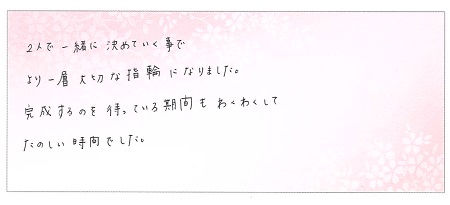 2人で一緒に決めていく事で
より一層大切な指輪になりました。
完成するのを待っている期間もわくわくして
たのしい時間でした。